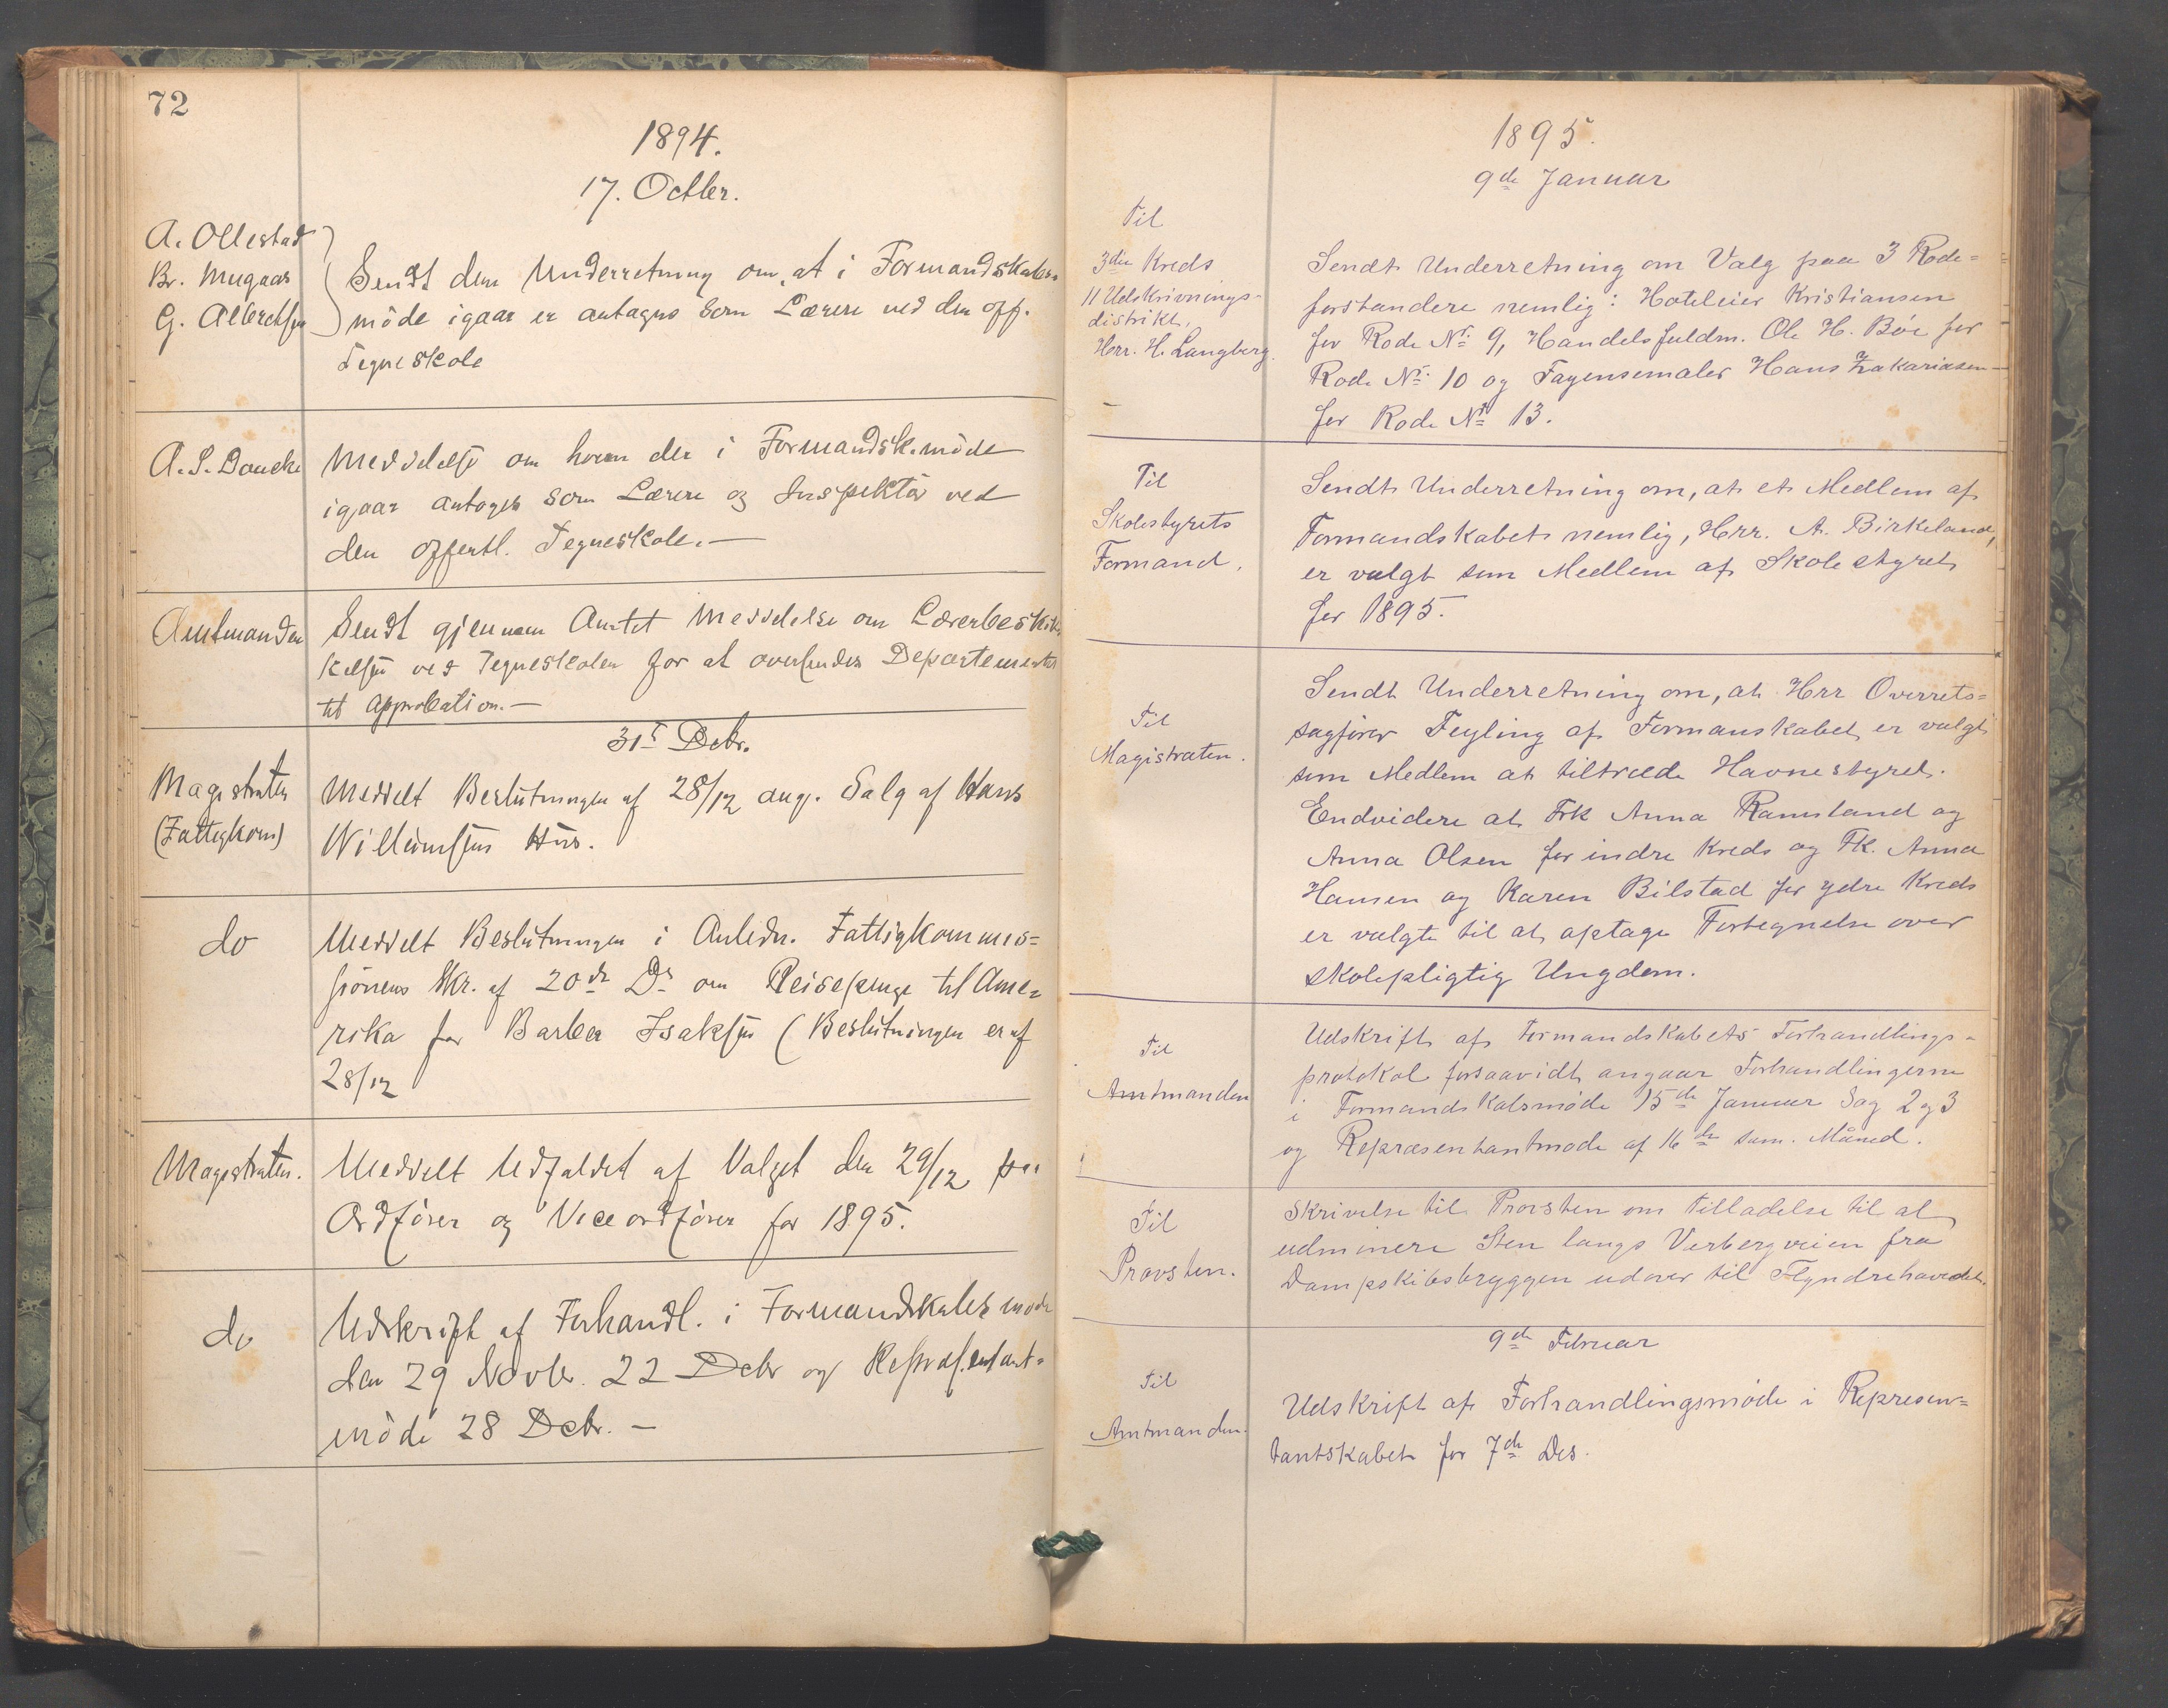 72
1894.
17. Octbr.
A. Ollestad
Br. Mugaas
G. Albrectsen
Sendt dem Underretning om, at i Formandskabs
møde igaar er antagne som Lærere ved den off.
Tegneskole
A. S. Doucke
Meddelelse om hvem der i Formandsk.møde
igaar antoges som Lærere og Inspektør ved
den offentl. Tegneskole.—
Amtmanden
Sendt gjennem Amtet Meddelelse om Lærerbeskik
kelsen ved Tegneskolen for at oversendes Departementet
til Approbation.—
31te Debr.
Magistraten
(Fattigkom)
Meddelt Beslutningen af 28/12 ang. Salg af Hans
Willumsens Hus.
do
Meddelt Beslutningen i Anledn. Fattigkommis=
sionens Skr. af 20de Ds om Reisepenge til Ame=
rika for Barber Isaksen (Beslutningen er af
28/12
Magistraten.
Meddelt Udfaldet af Valget den 29/12 paa
Ordfører og Viceordfører for 1895.
do
Udskrift af Forhandl. i Formandskabets møde
den 29 Novbr. 22 Debr og Repræsentant=
møde 28 Debr.—
1895.
9de Januar
Til
3die Kreds
11 Udskrivnings-
distrikt,
Herr. H. Langberg.
Sendt Underretning om Valg paa 3 Rode=
forstandere nemlig: Hoteleier Kristiansen
for Rode No 9, Handelsfuldm. Ole H. Bøe for
Rode No 10 og Fayensemaler Hans Zakariasen—
for Rode No 13.
Til
Skolestyrets
Formand.
Sendt Underretning om, at et Medlem af
Formandskabet nemlig, Herr. A. Birkeland,
er valgt som Medlem af Skolestyret
for 1895.
Til
Magistraten.
Sendt Underretning om, at Herr Overrets=
sagfører Feyling af Formanskabet er valgt
som Medlem at tiltræde Havnestyret.
Endvidere at Frk Anna Ramsland og
Anna Olsen for indre Kreds og Fk. Anna
Hansen og Karen Bilstad for ydre Kreds
er valgte til at optage Fortegnelse over
skolepligtig Ungdom.
Til
Amtmanden
Udskrift af Formandskabets Forhandlings-
protokol forsaavidt angaar Forhandlingerne
i Formandskabsmøde 15de Januar Sag 2 og 3
og Repræsentantmøde af 16de sam. Måned.
Til
Provsten.
Skrivelse til Provsten om Tilladelse til at
udminere Sten langs Verbergveien fra
Dampskibsbryggen udover til Flyndrehavedet.
9de Februar
Til
Amtmanden.
Udskrift af Forhandlingsmøde i Represen=
tantskabet for 7de Des.